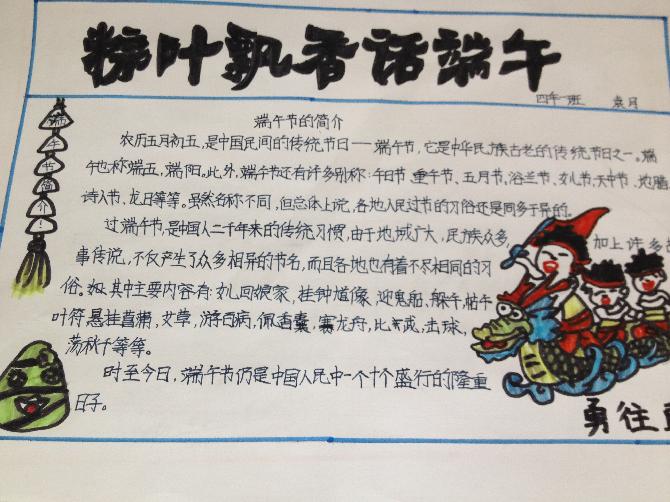 粽叶飘香话端午
四年一班 袁月
端午节简介!
端午节的简介
农历五月初五,是中国民间的传统节日——端午节,它是中华民族古老的传统节日之一。端
午也称端五,端阳。此外,端午节还有许多别称:午日节、重午节、五月节、浴兰节、女儿节、天中节、地腊、
诗人节、龙日等等。虽然名称不同,但总体上说,各地人民过节的习俗还是同多于异的。
过端午节,是中国人二千年来的传统习惯,由于地域广大,民族众多, 加上许多
事传说,不仅产生了众多相异的节名,而且各地也有着不尽相同的习
俗。如:其中主要内容有:女儿回娘家,挂钟馗像,迎鬼船、躲午,帖午
叶符,悬挂菖蒲,艾草,游百病,佩香囊,赛龙舟,比武,击球,
荡秋千等等。
时至今日,端午节仍是中国人民中一个十个盛行的隆重
日子。
勇往直